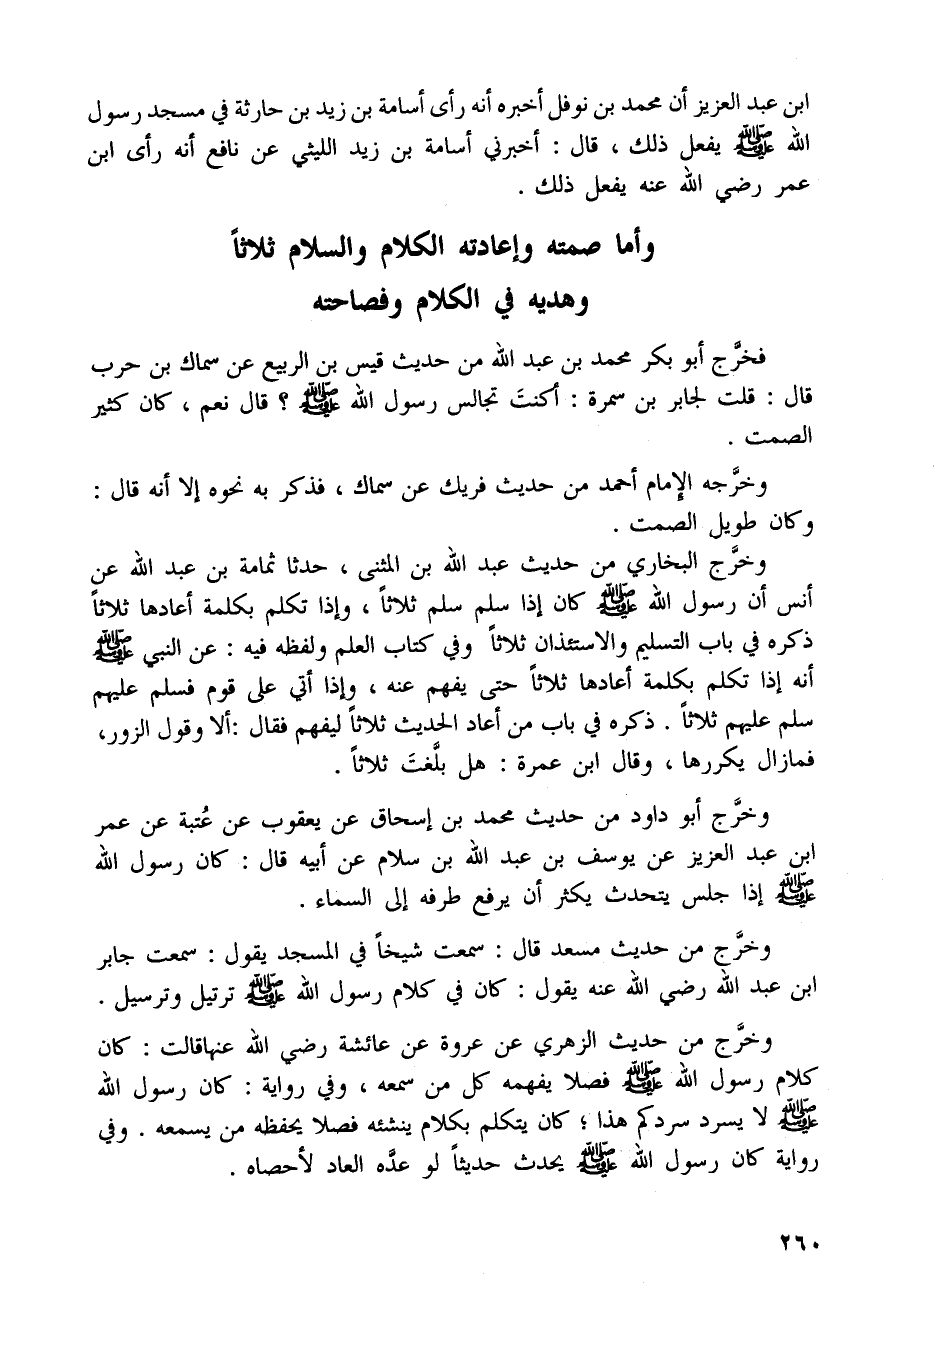 ابن عبد العزيز أن محمد بن نوفل أخبره أنه رأى أسامة بن زيد بن حارثة في مسجد رسول
الله ﷺ يفعل ذلك ، قال : أخبرني أسامة بن زيد الليثي عن نافع أنه رأى ابن
عمر رضي الله عنه يفعل ذلك .
وأما صمته وإعادته الكلام والسلام ثلاثاً
وهديه في الكلام وفصاحته
فخرَّج أبو بكر محمد بن عبد الله من حديث قيس بن الربيع عن سماك بن حرب
قال : قلت لجابر بن سمرة : أكنتَ تجالس رسول الله ﷺ ؟ قال نعم ، كان كثير
الصمت .
وخرَّجه الإمام أحمد من حديث فريك عن سماك ، فذكر به نحوه إلا أنه قال :
وكان طويل الصمت .
وخرَّج البخاري من حديث عبد الله بن المثنى ، حدثا ثمامة بن عبد الله عن
أنس أن رسول الله ﷺ كان إذا سلم سلم ثلاثاً ، وإذا تكلم بكلمة أعادها ثلاثاً
ذكره في باب التسليم والاستئذان ثلاثاً وفي كتاب العلم ولفظه فيه : عن النبي ﷺ
أنه إذا تكلم بكلمة أعادها ثلاثاً حتى يفهم عنه ، وإذا أتي على قوم فسلم عليهم
سلم عليهم ثلاثاً . ذكره في باب من أعاد الحديث ثلاثاً ليفهم فقال :ألا وقول الزور،
فمازال يكررها ، وقال ابن عمرة : هل بلَّغتَ ثلاثاً .
وخرَّج أبو داود من حديث محمد بن إسحاق عن يعقوب عن عُتبة عن عمر
ابن عبد العزيز عن يوسف بن عبد الله بن سلام عن أبيه قال : كان رسول الله
ﷺ إذا جلس يتحدث يكثر أن يرفع طرفه إلى السماء .
وخرَّج من حديث مسعد قال : سمعت شيخاً في المسجد يقول : سمعت جابر
ابن عبد الله رضي الله عنه يقول : كان في كلام رسول الله ﷺ ترتيل وترسيل .
وخرَّج من حديث الزهري عن عروة عن عائشة رضي الله عنهاقالت : كان
كلام رسول الله ﷺ فصلا يفهمه كل من سمعه ، وفي رواية : كان رسول الله
ﷺ لا يسرد سردكم هذا ؛ كان يتكلم بكلام ينشئه فصلا يحفظه من يسمعه . وفي
رواية كان رسول الله ﷺ يحدث حديثاً لو عدَّه العاد لأحصاه .
٢٦٠